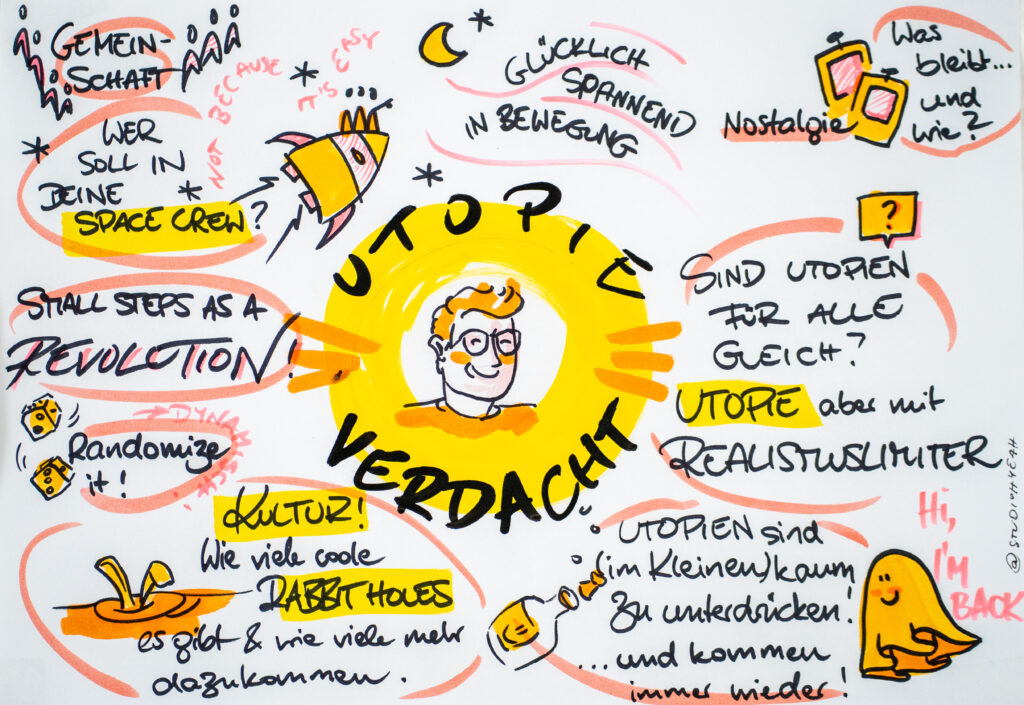 GEMEIN-
SCHAFT
WER
SOLL IN
DEINE
SPACE CREW?
NOT BECAUSE
IT'S EASY
GLÜCKLICH
SPANNEND
IN BEWEGUNG
Nostalgie
Was
bleibt...
und
wie?
UTOPIE
VERDACHT
SMALL STEPS AS A
REVOLUTION!
→ DYNAMISCH!
Randomize
it!
?
SIND UTOPIEN
FÜR ALLE
GLEICH?
UTOPIE aber mit
REALISMUSLIMITER
KULTUR!
Wie viele coole
RABBIT HOLES
es gibt & wie viele mehr
dazukommen.
UTOPIEN sind
(im Kleinen) kaum
zu unterdrücken!
...und kommen
immer wieder!
Hi,
I'M
BACK
@STUDIOHYEAH